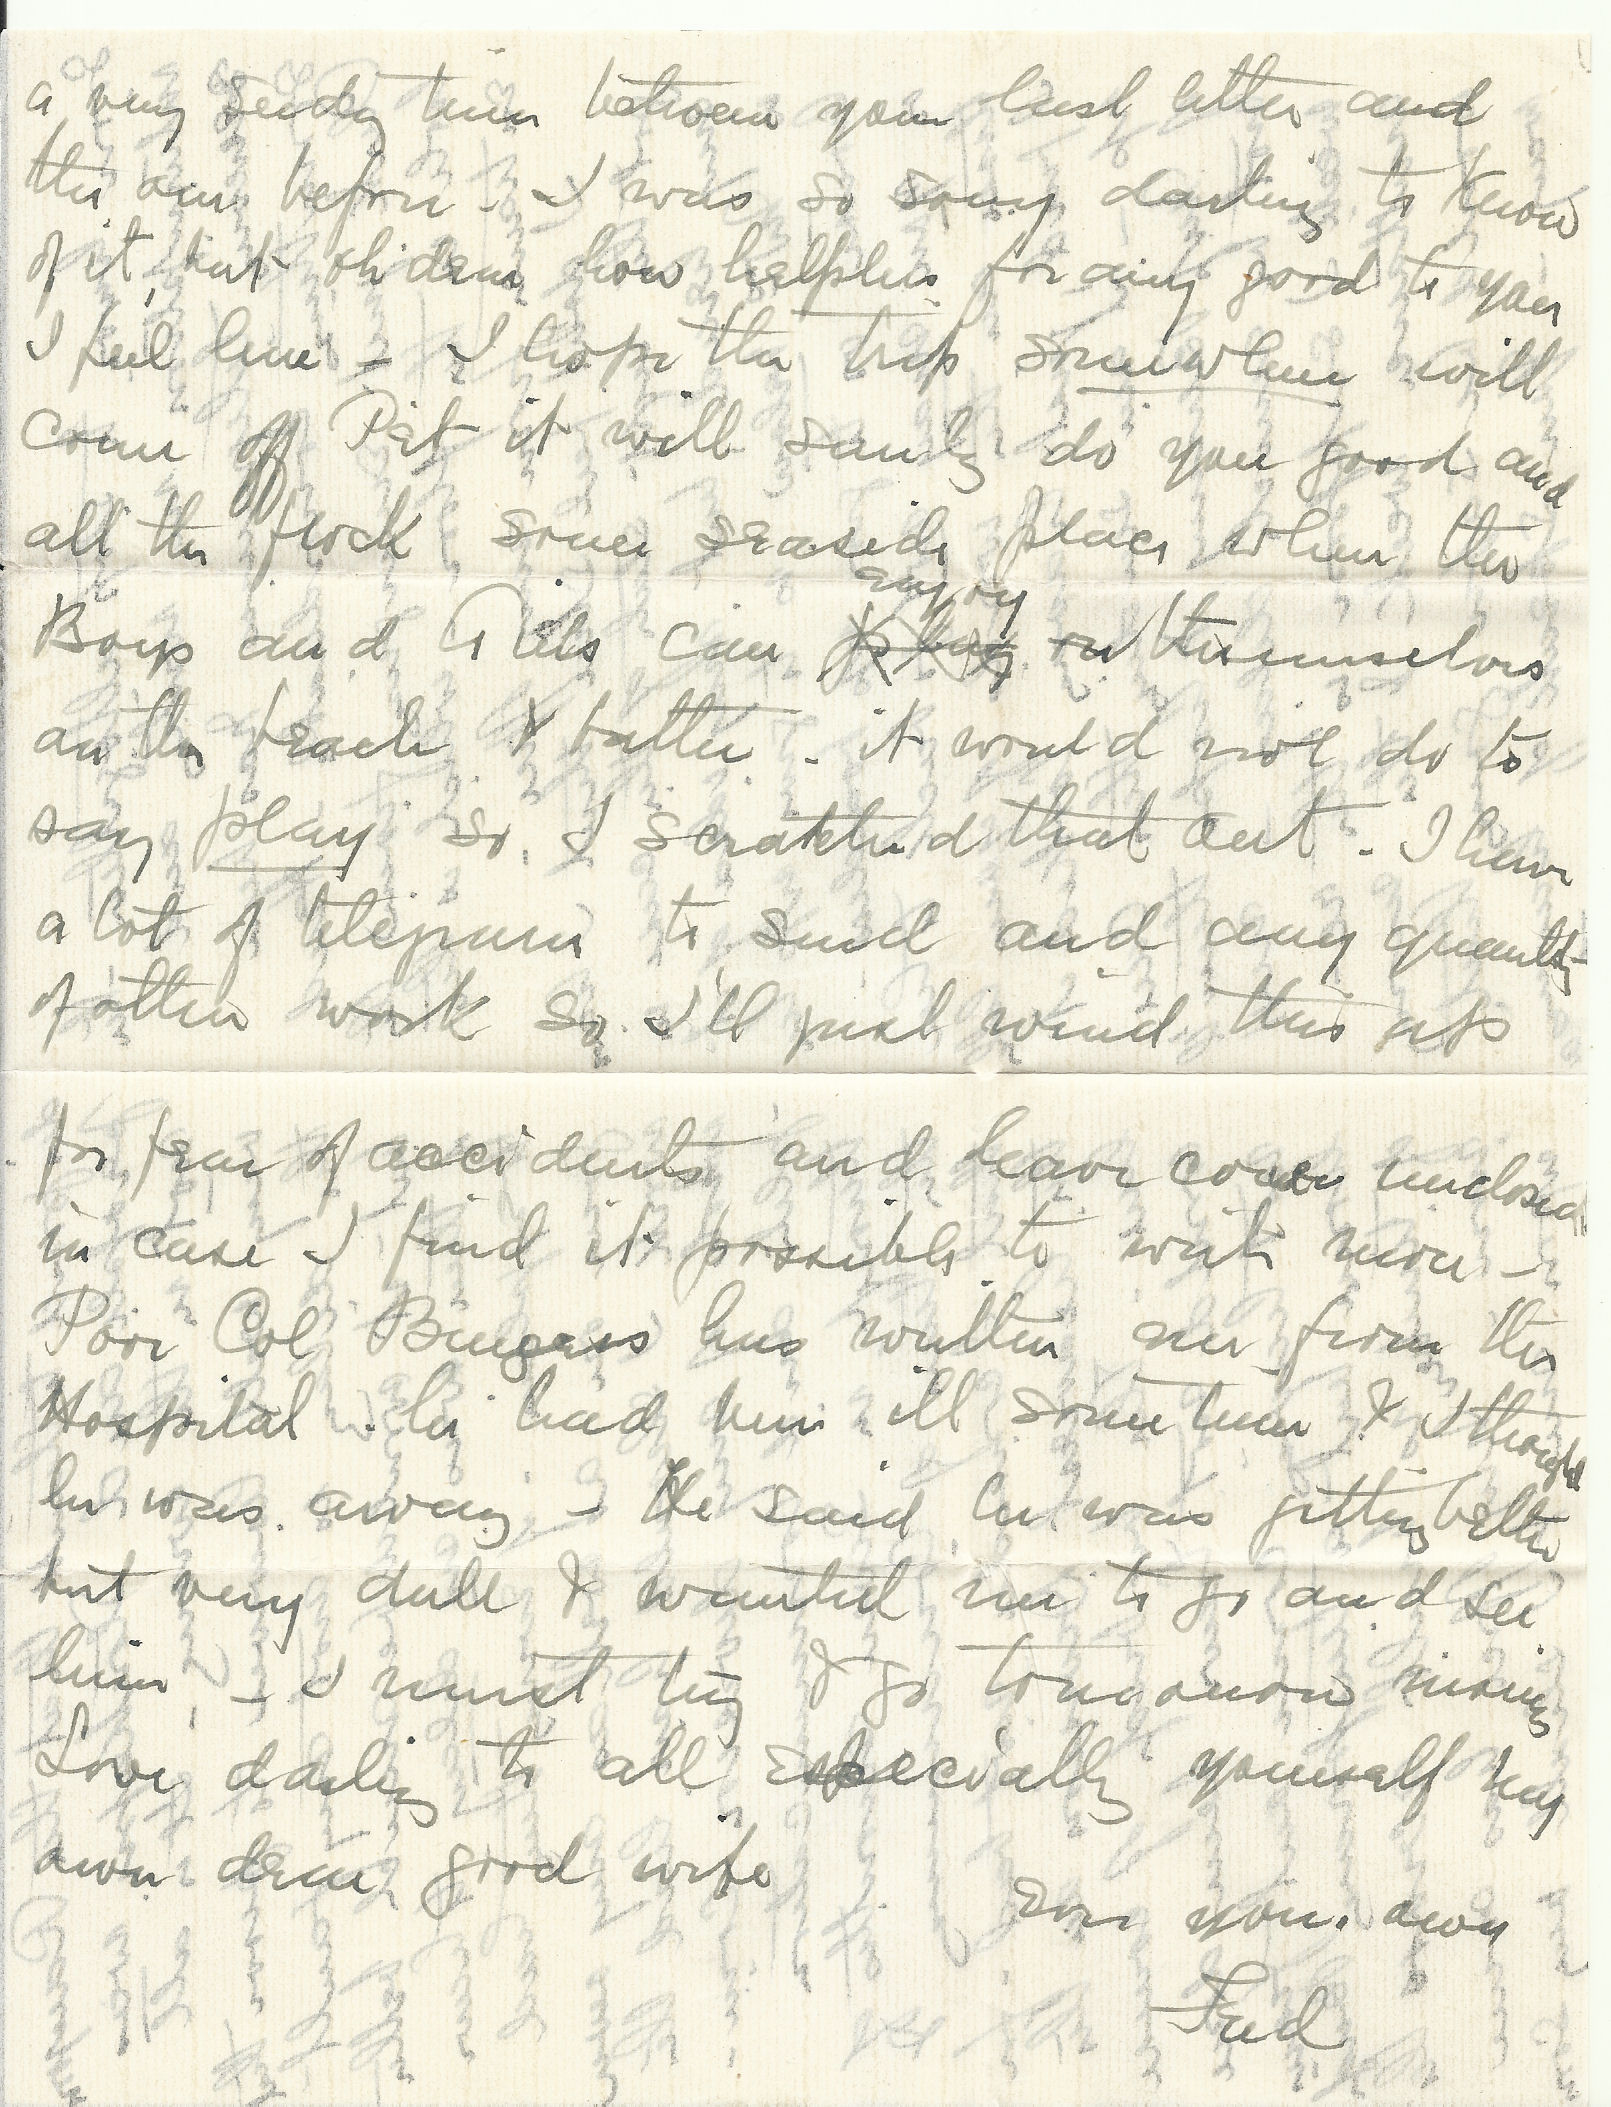 a very seedy time between your last letter and
the one before - I was so sorry darling to know
of it, but oh dear how helpless for any good to you
I feel here - I hope the trip somewhere will
come off Pet it will surely do you good and
all the flock some seaside place where the
Boys and Girls can enjoy themselves
on the beach & bathe - it would not do to
say play so I scratched that out - I have
a lot of telegrams to send and any quantity
of other work so I'll just wind this up
for fear of accidents and leave cover unclosed
in case I find it possible to write more -
Poor Col has written me from the
Hospital. he had been ill some time & I thought
he was away - He said he was getting better
but very dull & wanted me to go and see
him, - I must try & go tomorrow morning
Love darling to all especially yourself my
own dear good wife
Ever your own
Fred